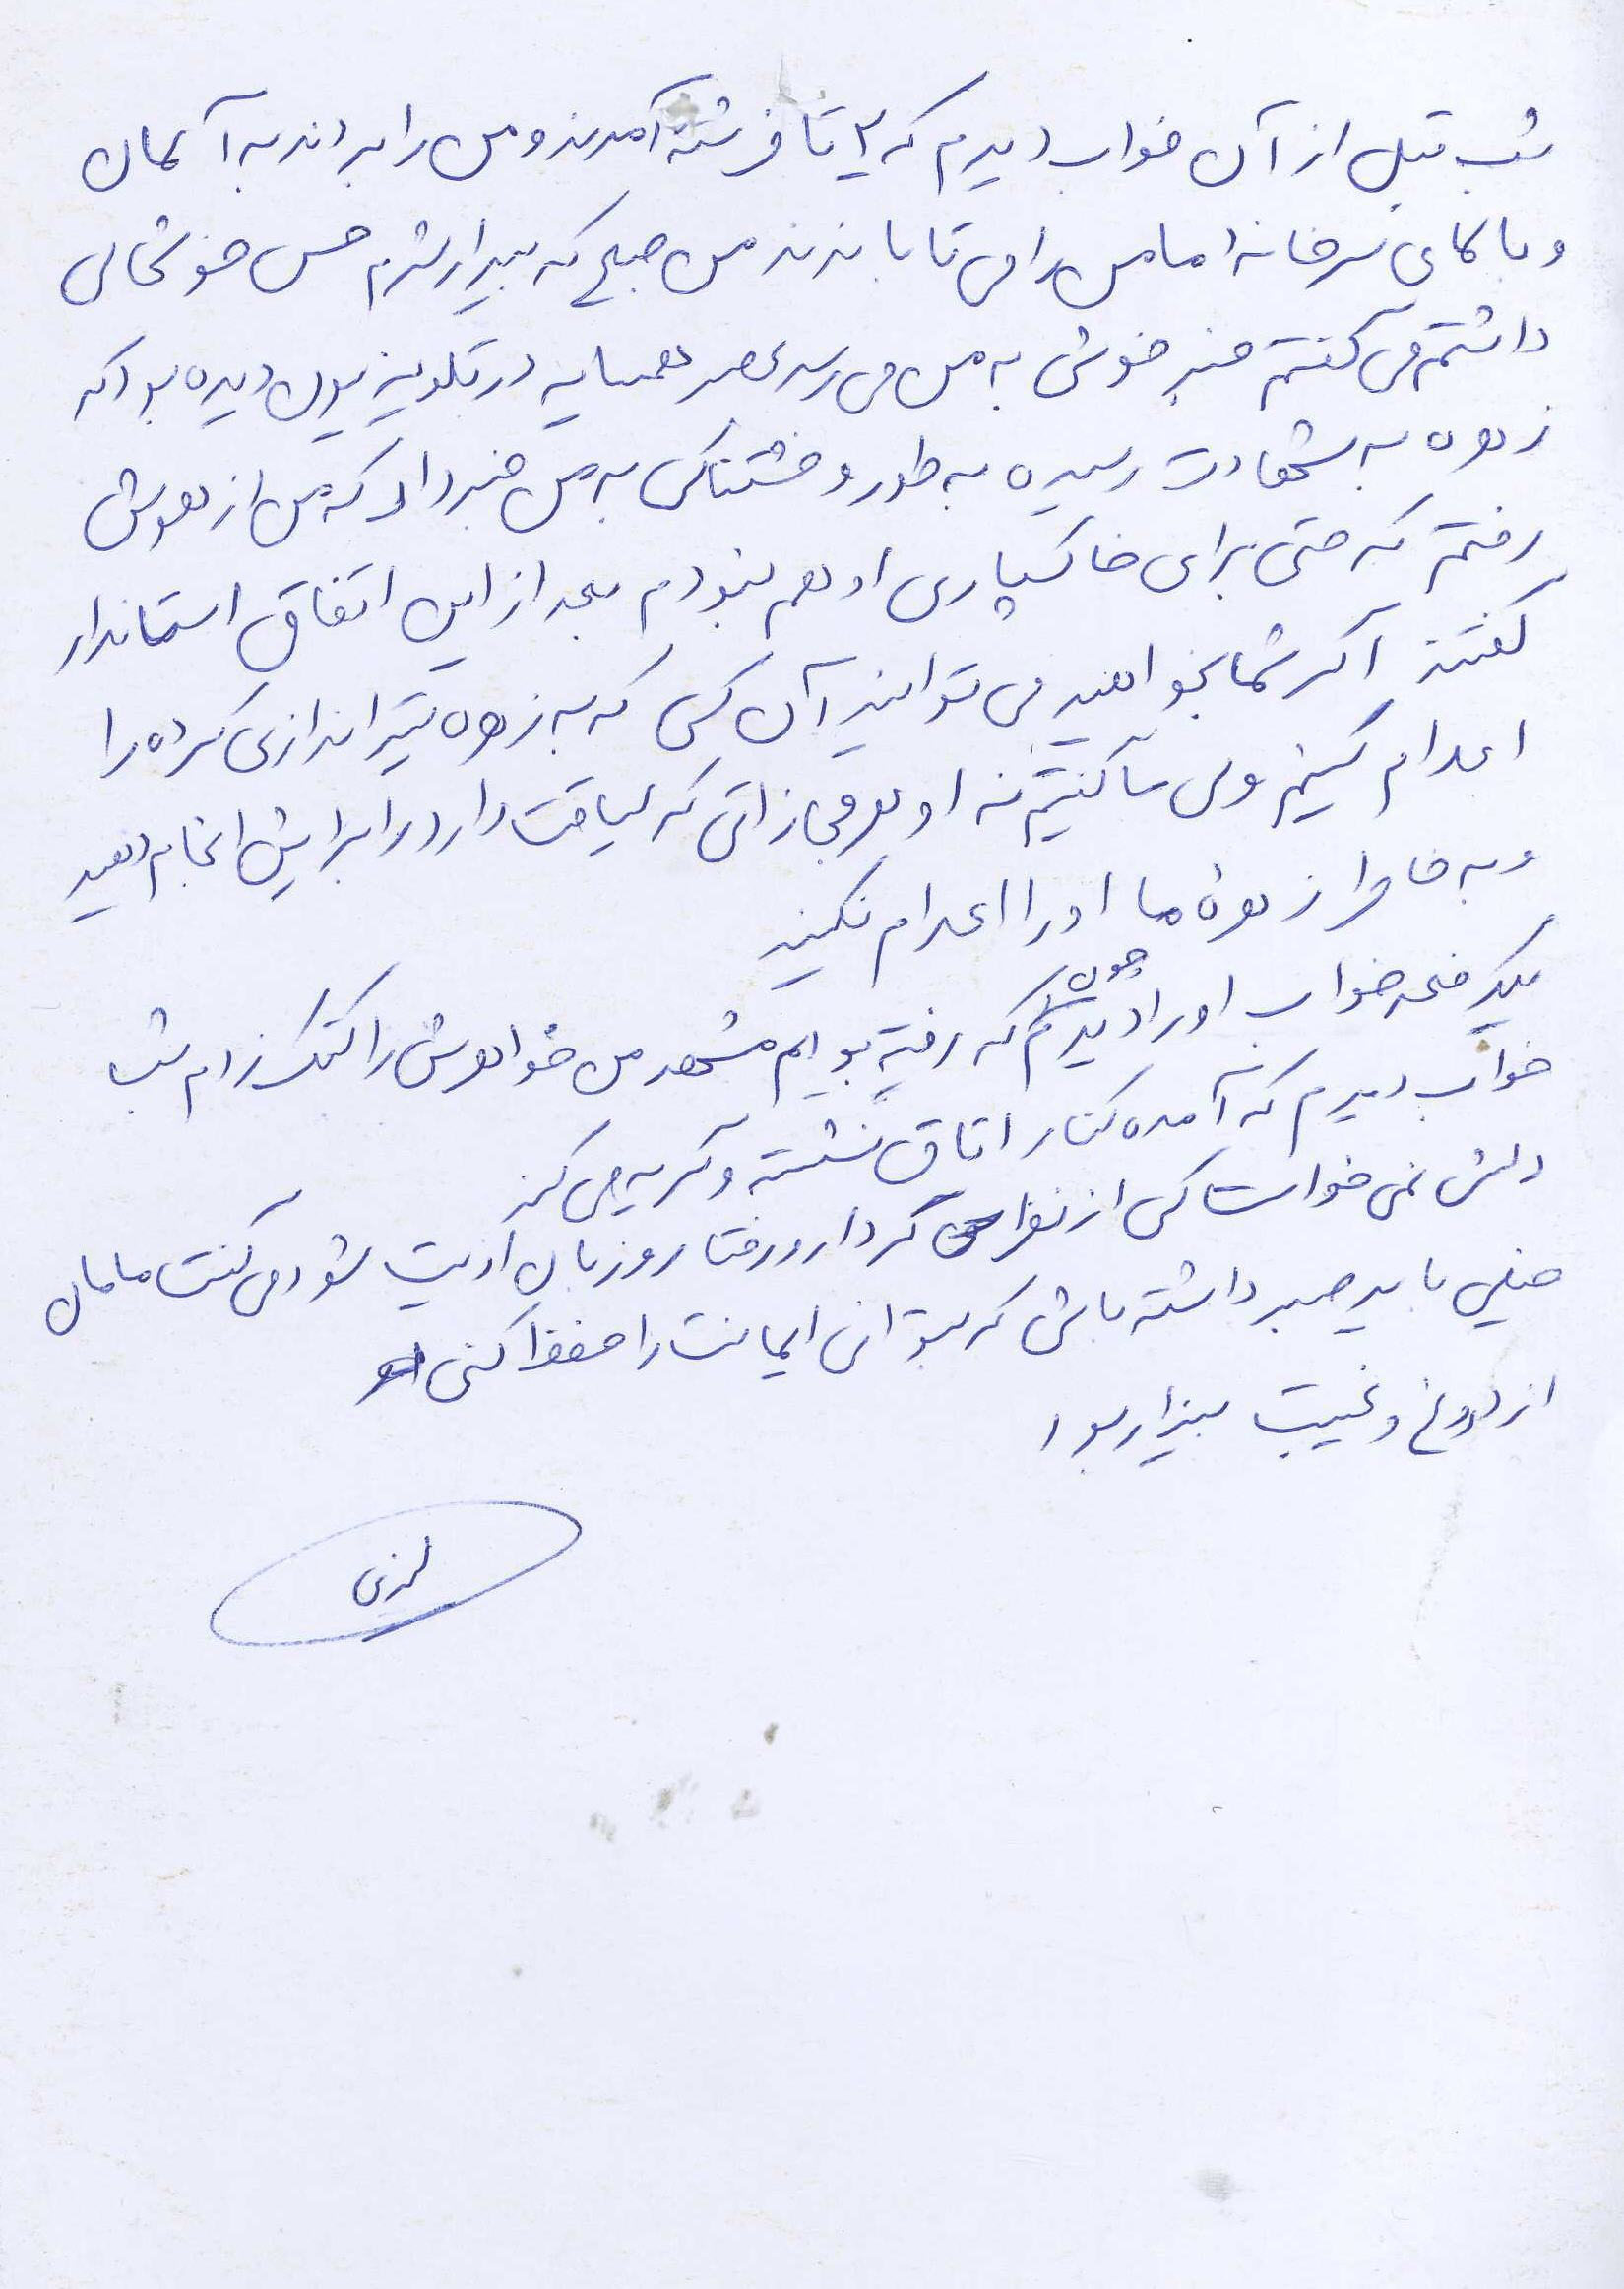 شب قبل از آن خواب دیدم که ۲ تا فرشته آمدند و من را بردند به آسمان
و بالای سر خانه امام من را می تاباندند من صبح که بیدار شدم حس خوشحالی
داشتم می گفتم خبر خوش به من می رسد عصر همسایه در تلویزیون دیده بود که
زهره به شهادت رسیده به طور وحشتناکی به من خبر داد که من از هوش
رفتم که حتی برای خاکسپاری او هم نبودم بعد از این اتفاق استاندار
گفتند اگر شما بخواهید می توانید آن کسی که به زهره تیراندازی کرده را
اعدام کنیم ولی ما گفتیم نه او هر مجازاتی که لیاقت دارد را برایش انجام دهید
و به خاطر زهره ما او را اعدام نکنید
یک دفعه خواب او را دیدم چون که رفته بودیم مشهد من خواهرش را کتک زدم شب
خواب دیدم که آمده کنار اتاق نشسته و گریه می کند
دلش نمی خواست کسی از نظر کردار و رفتار و زبان اذیت شود می گفت مامان
خیلی باید صبر داشته باش که بتوانی ایمانت را حفظ کنی
از دروغ و غیبت بیزار بود